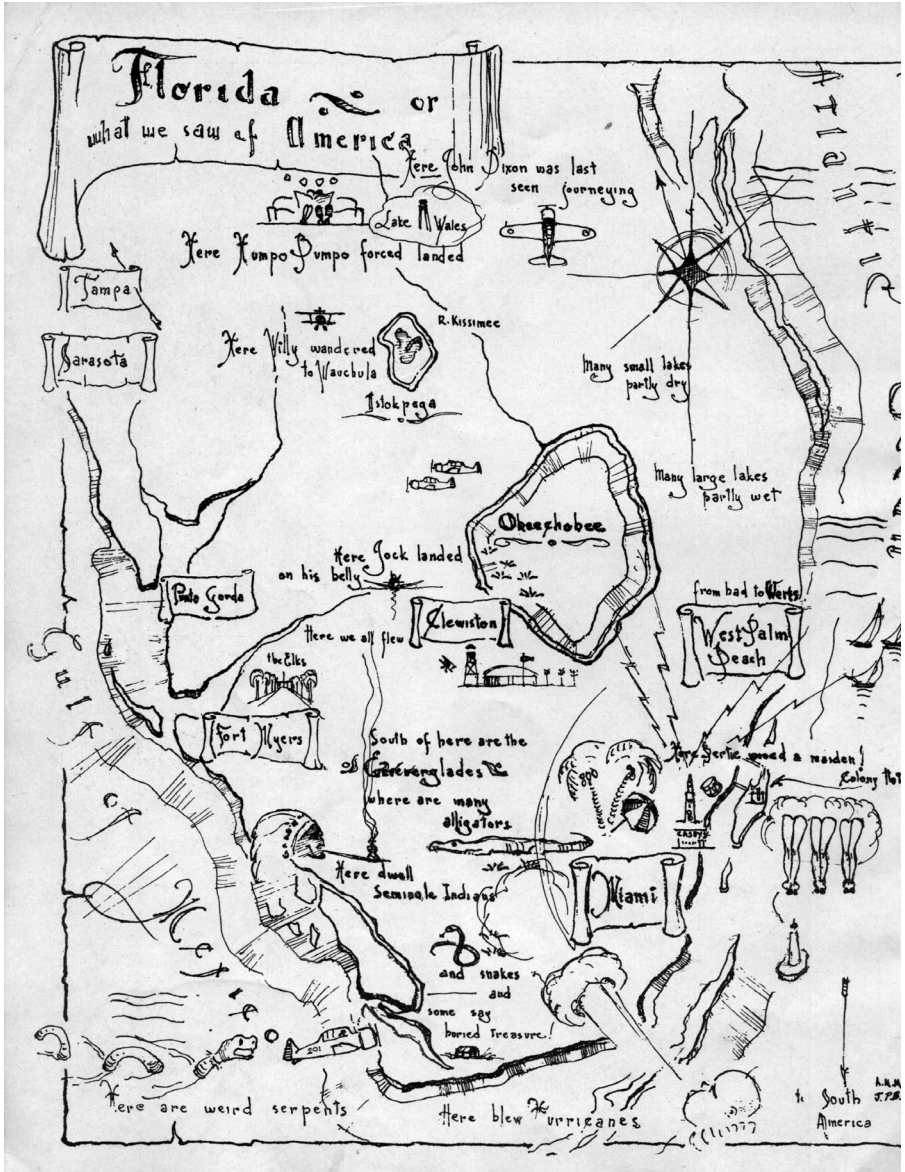 Florida or
what we saw of America
Here John Dixon was last
seen journeying
Lake Wales
Here Humpo Bumpo forced landed
Atlantic
Tampa
Sarasota
Here Willy wandered
to Wauchula
R. Kissimee
Istokpega
Many small lakes
partly dry
Many large lakes
partly wet
Okeechobee
Here Jock landed
on his belly
Punta Gorda
Clewiston
from bad to Werts
West Palm
Beach
Here we all flew
the Elks
Fort Myers
South of here are the
Geeverglades
where are many
alligators
Here Bertie wooed a maiden!
Colony
CASEYS
Here dwell
Seminole Indians
Miami
Gulf
Mex
and snakes
and
some say
buried treasure!
201
Here are weird serpents
Here blew Hurricanes
to South
America